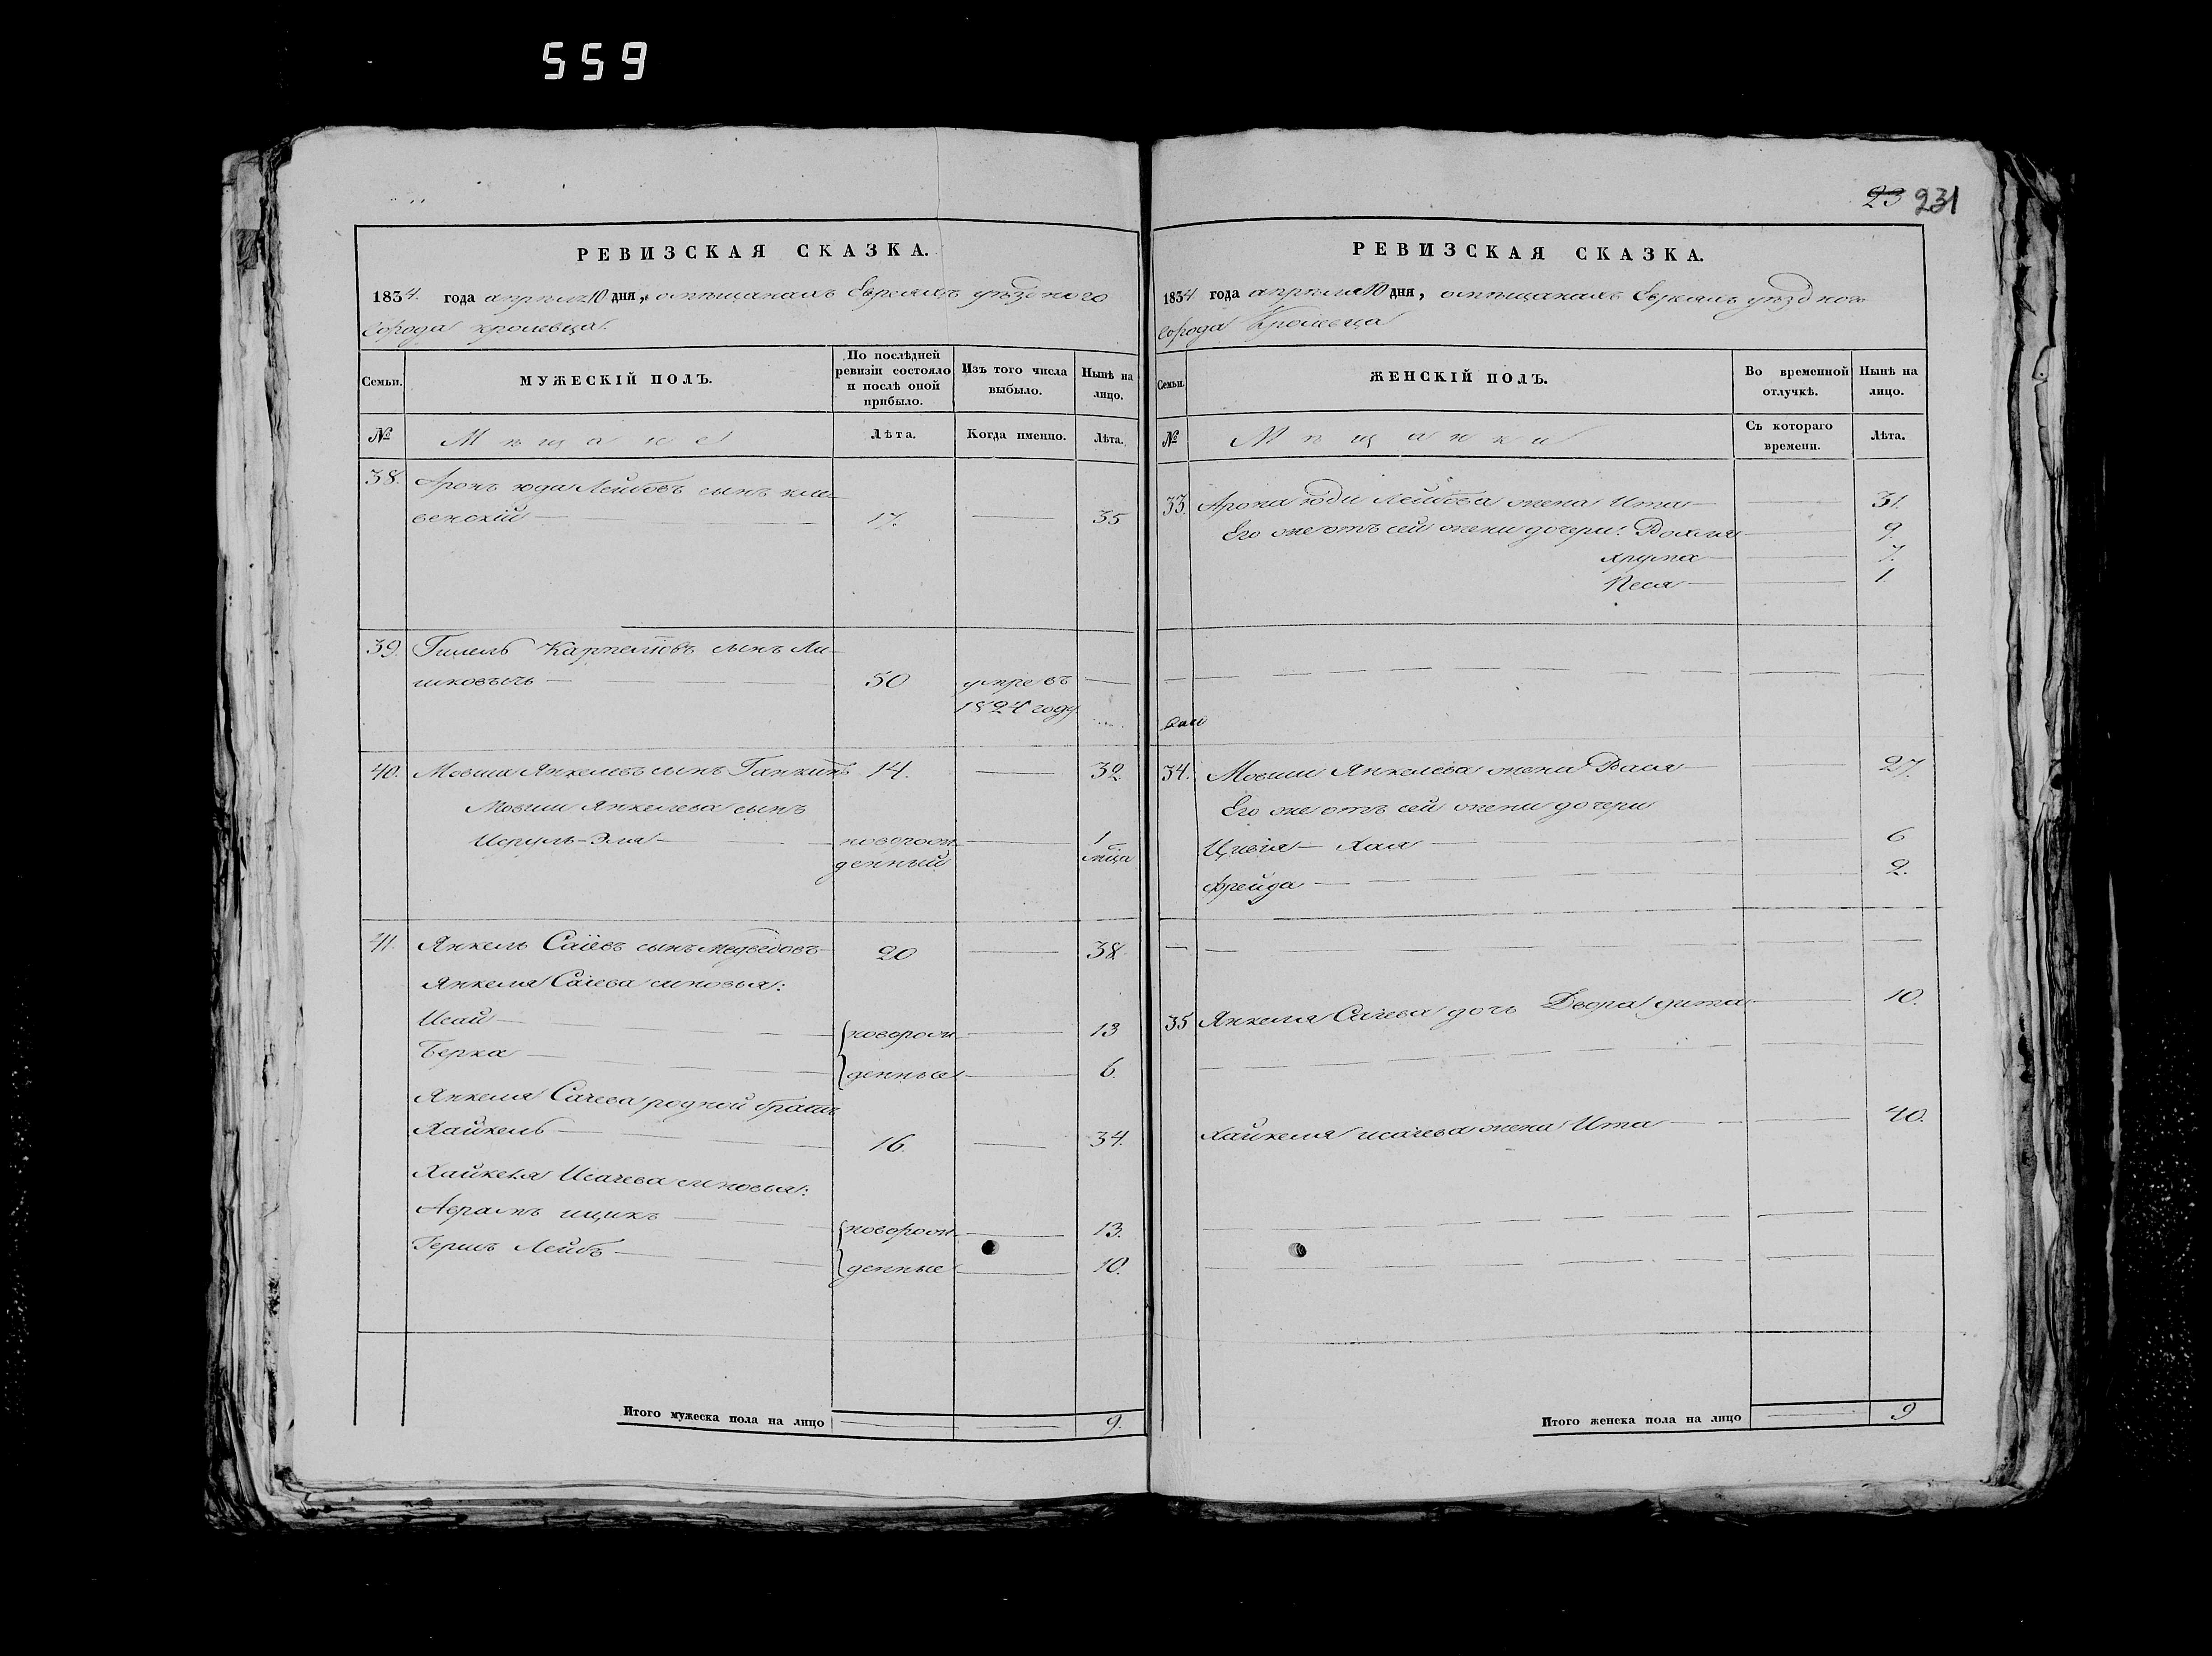 559
РЕВИЗСКАЯ СКАЗКА.
1834. года апреля 10 дня, о мѣщанахъ Евреяхъ уѣздного
города кролевца.
Семьи.
МУЖЕСКІЙ ПОЛЪ.
По послѣдней ревизіи состояло и послѣ оной прибыло.
Изъ того числа выбыло.
Нынѣ на лицо.
№
Мѣщане
Лѣта.
Когда именно.
Лѣта.
38. Аронъ юда Лейбовъ сынъ кли-
венскій — 17. — 35
39. Гилель Карпелевъ сынъ Ли-
шковычь — 50 умре въ —
1824 году.
40. Мовша Янкелевъ сынъ Ганкинъ 14. — 32.
Мовши Янкелева сынъ
Исруль-Эля — новорож — 1
денный мца
41. Янкель Саіевъ сынъ медведовъ — 20 — 38
Янкеля Саіева сыновья:
Исай — новорож — 13
Берка — денные — 6.
Янкеля Саіева родной братъ
Хайкель — 16. — 34.
Хайкеля Исаіева сыновья:
Аврамъ ицикъ — новорож — 13.
Гершъ Лейбъ — денные — 10.
Итого мужеска пола на лицо — — 9.
23 231
РЕВИЗСКАЯ СКАЗКА.
1834 года апреля 10 дня, о мѣщанахъ Евреяхъ уѣздного
города Кролевца
Семьи.
ЖЕНСКІЙ ПОЛЪ.
Во временной отлучкѣ.
Нынѣ на лицо.
№
Мѣщанки
Съ котораго времени.
Лѣта.
33. Арона юди Лейбова жена Ита — — 31.
Его же отъ сей жени дочери: Рохля — 9.
Хрума — — 7.
Песя — — 1
34. Мовши Янкелева жена Вася — — 27.
Его же отъ сей жени дочери
Цивія — Хая — — 6
Фрейда — — 2.
35 Янкеля Саіева дочь Двора гита — 10.
Хайкеля исаіева жена Ита — — 40.
Итого женска пола на лицо — 9